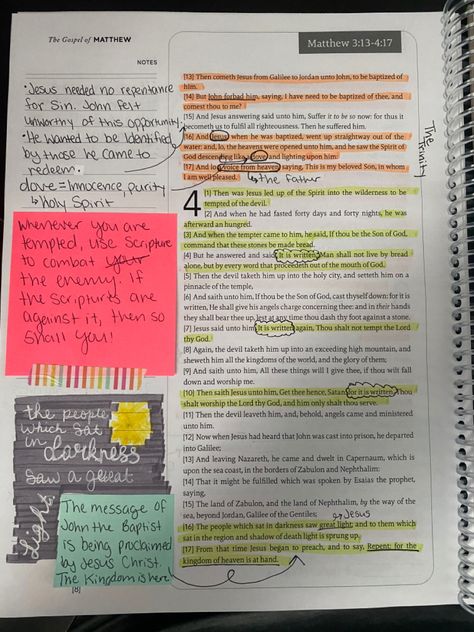 The Gospel of MATTHEW
Matthew 3:13-4:17
NOTES
• Jesus needed no repentance
for Sin. John felt
unworthy of this opportunity.
• He wanted to be identified
by those he came to
redeem.
dove = Innocence, purity
↳ Holy Spirit
Whenever you are
tempted, use Scripture
to combat your
the enemy. If
the Scriptures are
against it, then so
shall you!
the people
which sat
in Darkness
saw a great
Light
The message of
John the Baptist
is being proclaimed
by Jesus Christ.
The Kingdom is here!
[8]
[13] Then cometh Jesus from Galilee to Jordan unto John, to be baptized of
him.
[14] But John forbad him, saying, I have need to be baptized of thee, and
comest thou to me?
[15] And Jesus answering said unto him, Suffer it to be so now: for thus it
becometh us to fulfil all righteousness. Then he suffered him.
[16] And Jesus, when he was baptized, went up straightway out of the
water: and, lo, the heavens were opened unto him, and he saw the Spirit of
God descending like a dove, and lighting upon him:
[17] And lo a voice from heaven, saying, This is my beloved Son, in whom
I am well pleased.
↳ the Father
The Trinity
4
[1] Then was Jesus led up of the Spirit into the wilderness to be
tempted of the devil.
[2] And when he had fasted forty days and forty nights, he was
afterward an hungred.
[3] And when the tempter came to him, he said, If thou be the Son of God,
command that these stones be made bread.
[4] But he answered and said, It is written, Man shall not live by bread
alone, but by every word that proceedeth out of the mouth of God.
[5] Then the devil taketh him up into the holy city, and setteth him on a
pinnacle of the temple,
[6] And saith unto him, If thou be the Son of God, cast thyself down: for it is
written, He shall give his angels charge concerning thee: and in their hands
they shall bear thee up, lest at any time thou dash thy foot against a stone.
[7] Jesus said unto him, It is written again, Thou shalt not tempt the Lord
thy God.
[8] Again, the devil taketh him up into an exceeding high mountain, and
sheweth him all the kingdoms of the world, and the glory of them;
[9] And saith unto him, All these things will I give thee, if thou wilt fall
down and worship me.
[10] Then saith Jesus unto him, Get thee hence, Satan: for it is written, Thou
shalt worship the Lord thy God, and him only shalt thou serve.
[11] Then the devil leaveth him, and, behold, angels came and ministered
unto him.
[12] Now when Jesus had heard that John was cast into prison, he departed
into Galilee;
[13] And leaving Nazareth, he came and dwelt in Capernaum, which is
upon the sea coast, in the borders of Zabulon and Nephthalim:
[14] That it might be fulfilled which was spoken by Esaias the prophet,
saying,
[15] The land of Zabulon, and the land of Nephthalim, by the way of the
sea, beyond Jordan, Galilee of the Gentiles;
Jesus
[16] The people which sat in darkness saw great light; and to them which
sat in the region and shadow of death light is sprung up.
[17] From that time Jesus began to preach, and to say, Repent: for the
kingdom of heaven is at hand.